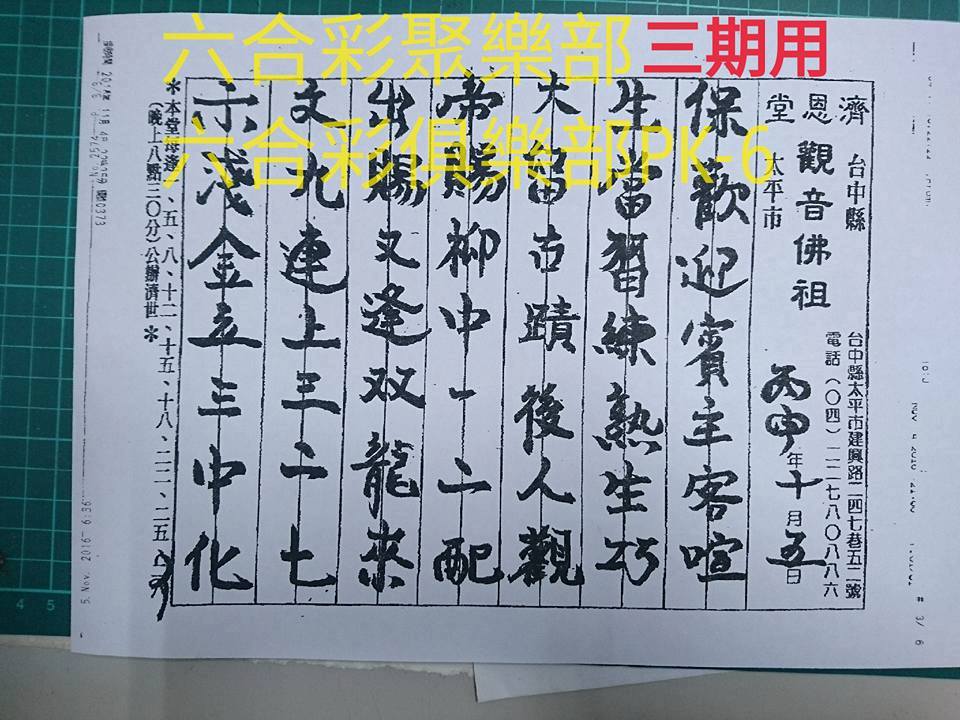 六合彩聚樂部 三期用
六合彩俱樂部PK-6
濟恩堂
觀音佛祖
台中縣
太平市
台中縣太平市建興路二四七巷五二號
電話(〇四)二二七八〇八八六
丙申年十月五日
保歡迎賓主客喧
生當習練熟生巧
大留古蹟後人觀
帝賜柳中一二配
出賜文逢双龍來
文九連上三二七
示淺金玄三中化
*本堂每逢二、五、八、十二、十五、十八、二二、二五
(晚上八點三〇分)公辦濟世*
5. Nov. 2016 6:36
No. 2574